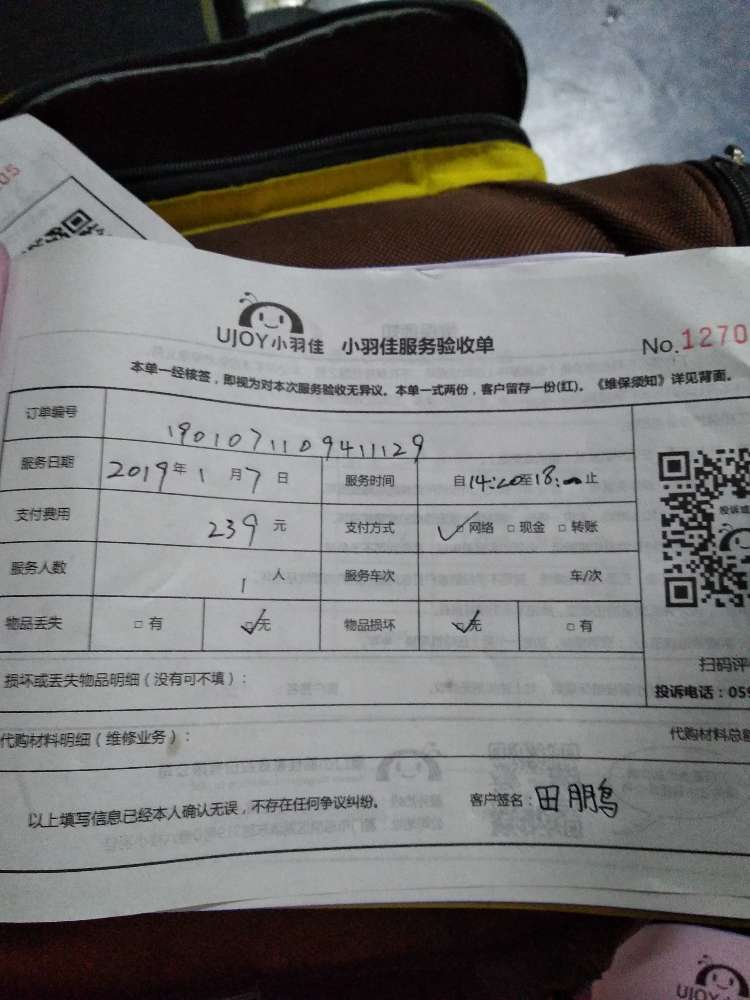 05
UJOY小羽佳 小羽佳服务验收单
No.1270
本单一经核签，即视为对本次服务验收无异议。本单一式两份，客户留存一份(红)。《维保须知》详见背面。
订单编号 1901071109411129
服务日期 2019年1月7日 服务时间 自14:20至18: 止
支付费用 239元 支付方式 ☑网络 □现金 □转账
服务人数 1人 服务车次 车/次
物品丢失 □有 ☑无 物品损坏 ☑无 □有
投诉或
扫码评
损坏或丢失物品明细（没有可不填）：
投诉电话：059
代购材料明细（维修业务）：
代购材料总额
以上填写信息已经本人确认无误，不存在任何争议纠纷。 客户签名：田鹏
UJOY